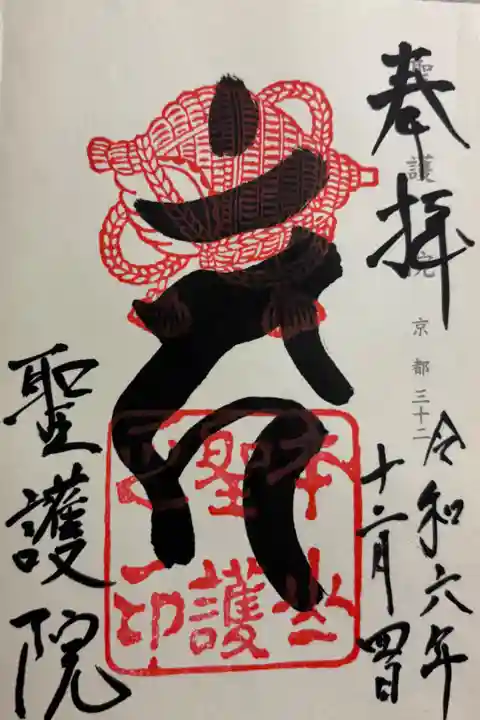 奉拝
聖護院 京都三十二
令和六年
十二月四日
本山
聖護
之印
聖護院